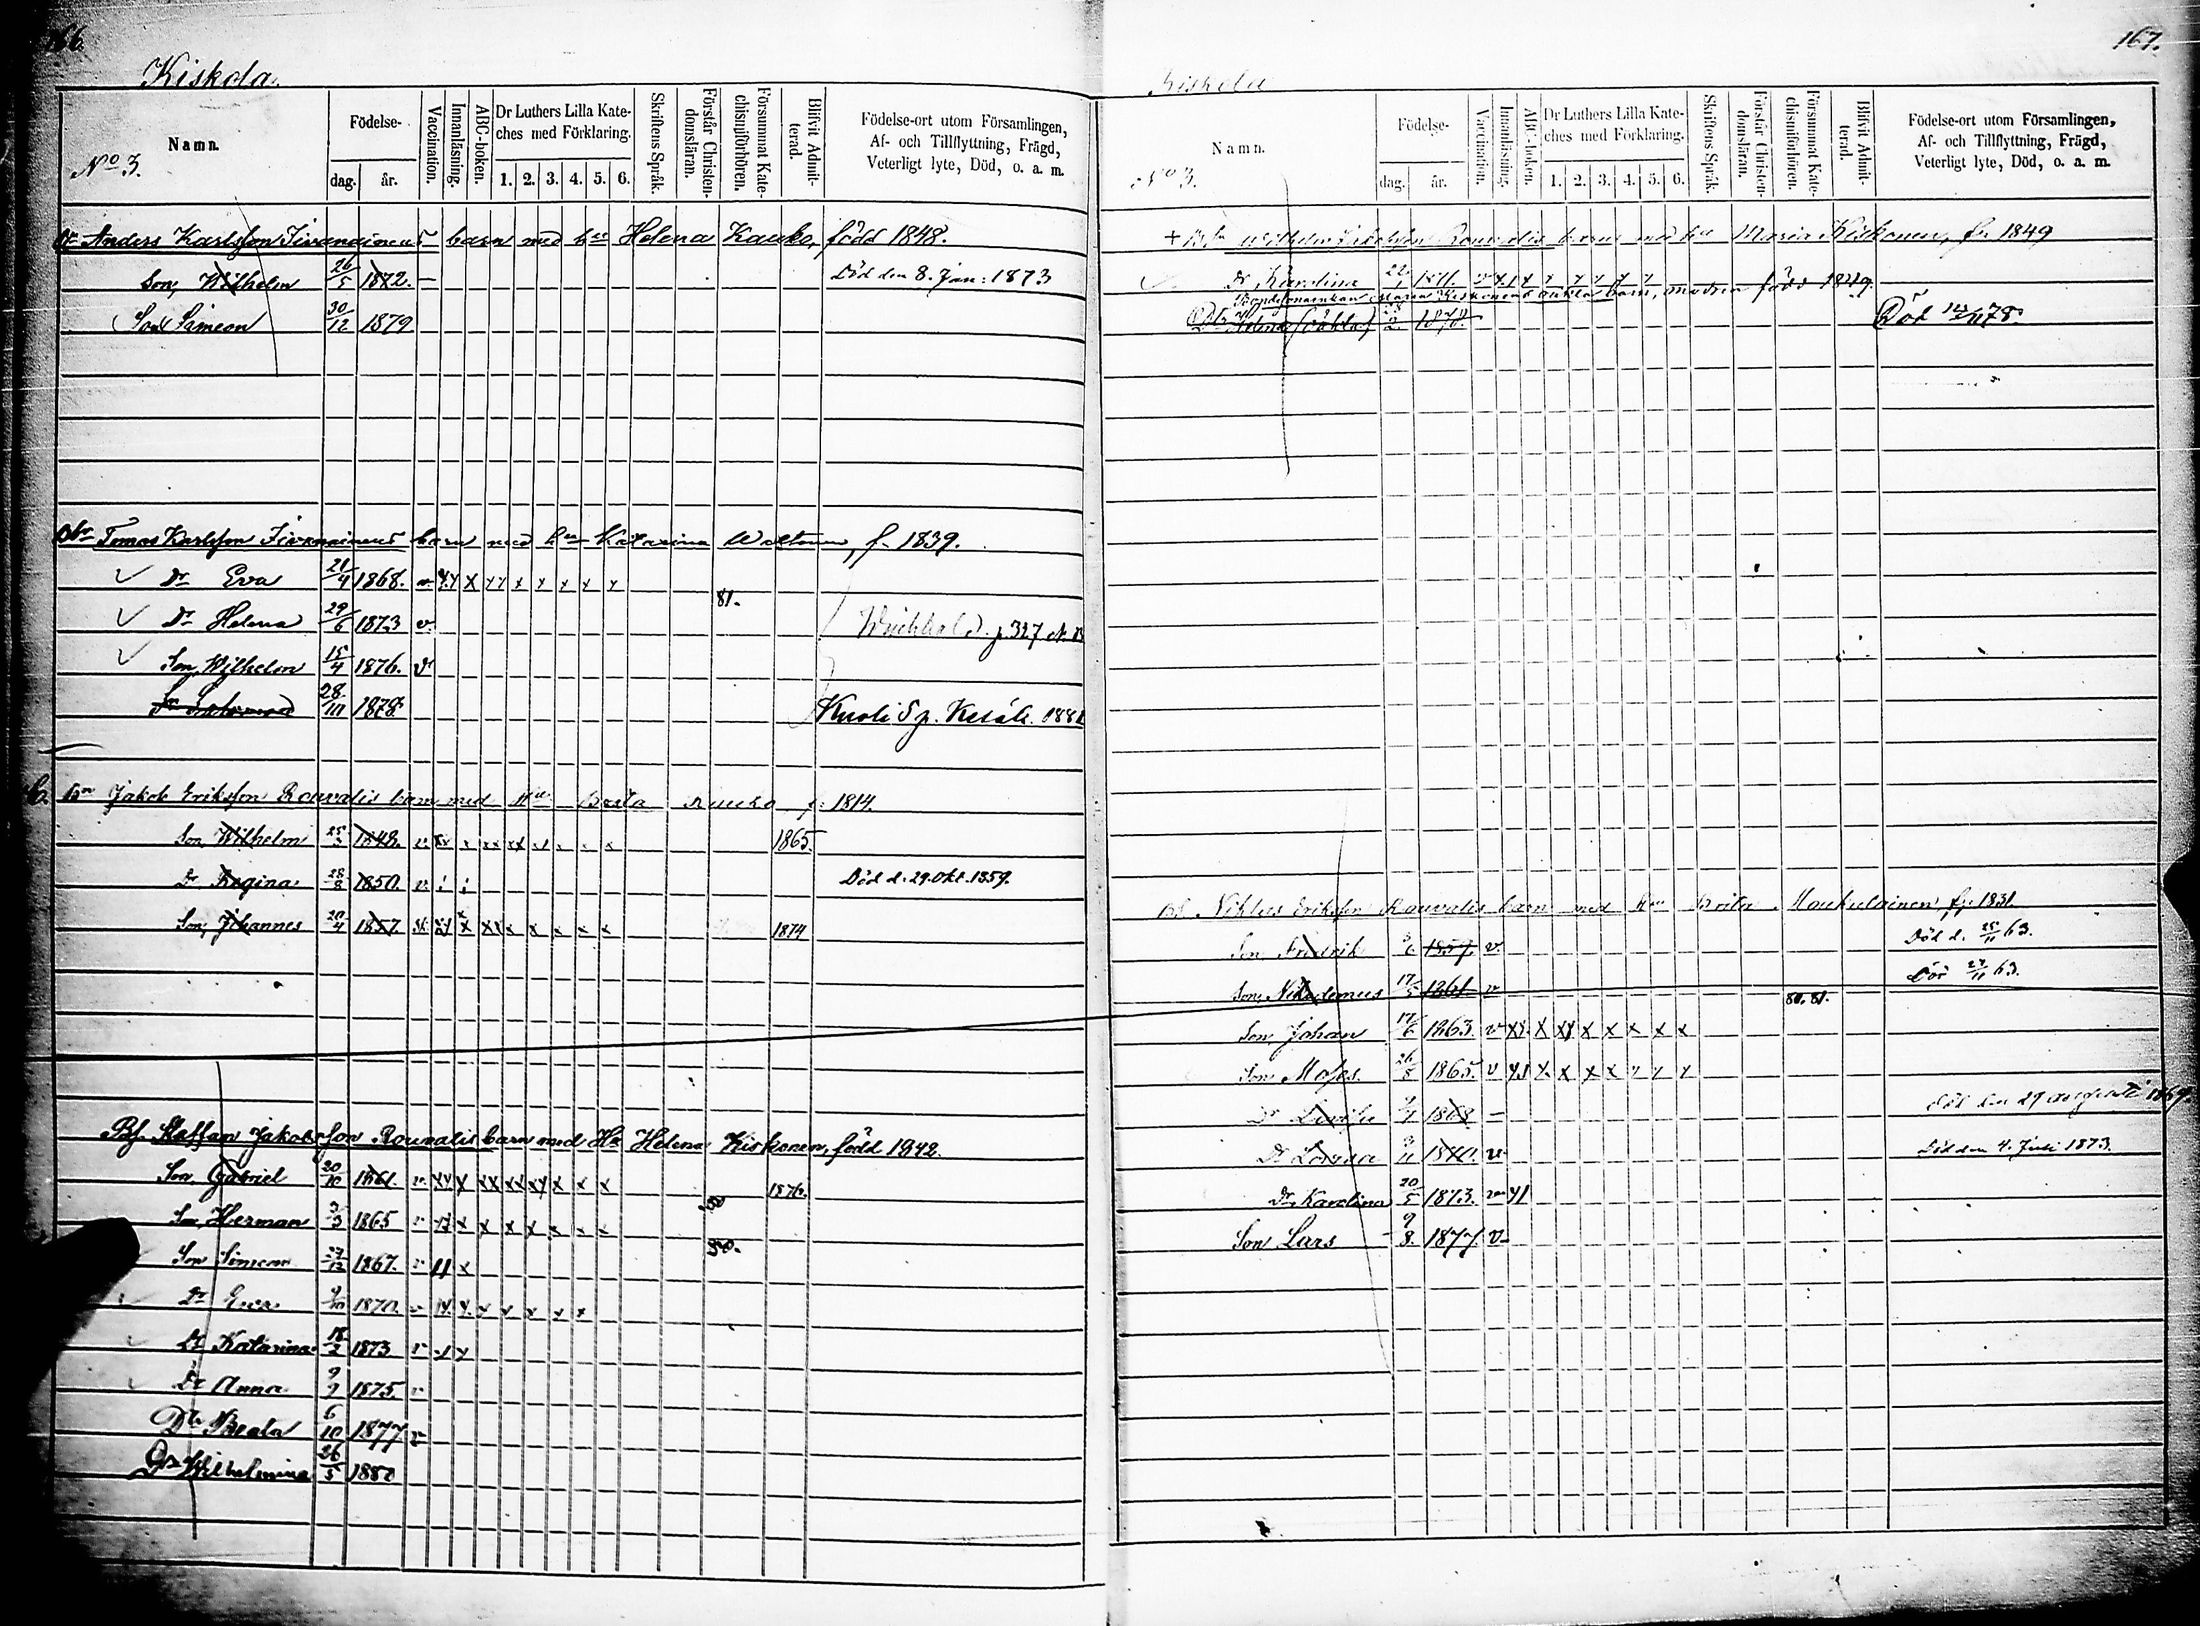 166.
Kiskola.
Namn.
No 3.
Födelse-
dag. år.
Vaccination.
Innanläsning.
ABC-boken.
Dr Luthers Lilla Kate-
ches med Förklaring.
1. 2. 3. 4. 5. 6.
Skriftens Språk.
Förstår Christen-
domsläran.
Försummat Kate-
chismiförhören.
Blifvit Admit-
terad.
Födelse-ort utom Församlingen,
Af- och Tillflyttning, Frägd,
Veterligt lyte, Död, o. a. m.
Anders Karlsson Tivanainens barn med hu Helena Kauko, född 1848.
Son, Wilhelm 26/5 1872. – Död den 8. Jan: 1873
Son Simeon 30/12 1879
Tomas Karlsson Tivanainens barn med hu Katarina f. 1839.
Dr Eva 21/4 1868. v. x x x x x x x x
81.
Dr Helena 29/6 1873 v. p. 327
Son, Wilhelm 15/4 1876. v
28/III 1878. Kuoli 5 p. Kesäk. 1881
6. Jakob Eriksson Rouvalis barn med Hu Brita Kauko f. 1814.
Son, Wilhelm 25/3 1848. 1865.
Dr Regina 28/8 1850. Död d. 29. Okt. 1859.
Son, Johannes 20/4 1857. 1874
Staffan Jakobsson Rouvalis barn med Hu Helena Kiskonen, född 1842.
Son Gabriel 20/10 1861. 1876.
Son, Herman 3/3 1865
Son Simeon 27/12 1867. 80.
Dr Eva 9/10 1870.
Dr Katarina 18/2 1873
Dr Anna 9/9 1875.
Dtr Beata 6/10 1877 v
Dr Wilhelmina 26/5 1880
167.
Kiskola
Namn.
No 3.
Födelse-
dag. år.
Vaccination.
Innanläsning.
ABC-boken.
Dr Luthers Lilla Kate-
ches med Förklaring.
1. 2. 3. 4. 5. 6.
Skriftens Språk.
Förstår Christen-
domsläran.
Försummat Kate-
chismiförhören.
Blifvit Admit-
terad.
Födelse-ort utom Församlingen,
Af- och Tillflyttning, Frägd,
Veterligt lyte, Död, o. a. m.
+ Wilhelm Jakobsson Rouvalis barn med hu Maria Kiskonen, f. 1849
Dr Karolina 1871.
Bondesonenkan Maria Kiskonens oäkta barn, modren född 1849.
Dtr Helena (oäkta) 28/2 1878. Död 78.
Niklas Eriksson Rouvalis barn med hu Brita Moukulainen f. 1831
Son Fredrik 1857. v. Död d. 25/11 63.
Son, Nikodemus 17/5 1861 v Död 27/11 63.
80. 81.
Son, Johan 17/6 1863. v x x x x x x x x
Son Moses. 26/8 1865. v
Dr Lovisa 1868 – 1869.
Dr Lovisa 3/11 1870. v. Död den 4. Juli 1873.
Dr Karolina 20/5 1873.
Son Lars 9/8. 1877 v.